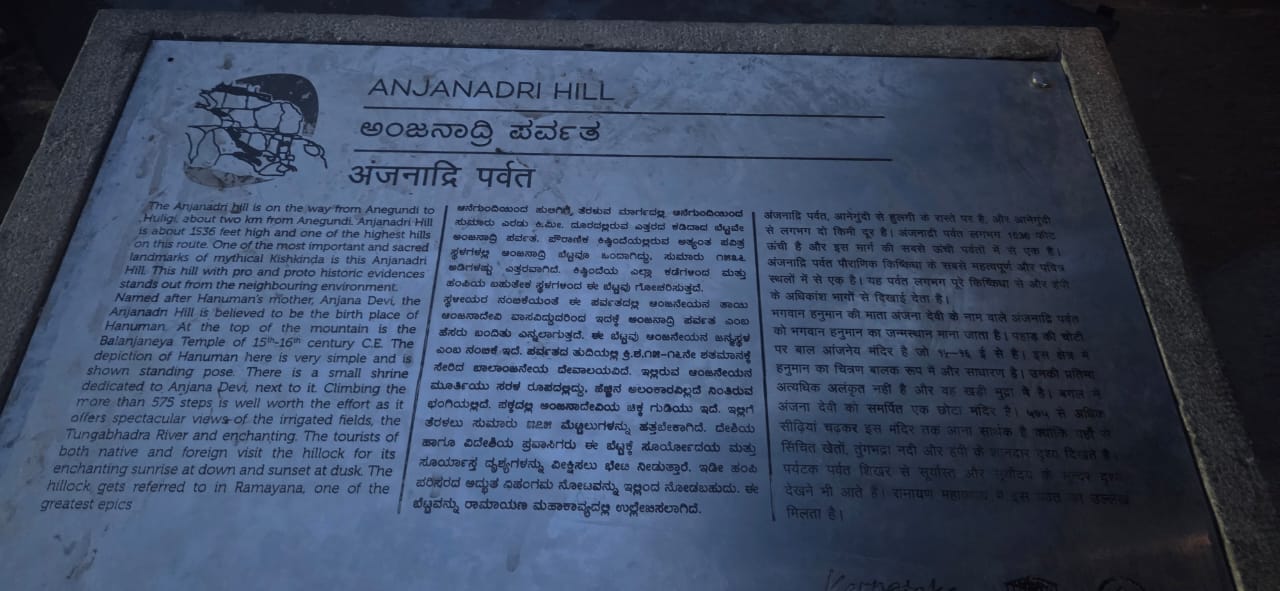 ANJANADRI HILL
ಅಂಜನಾದ್ರಿ ಪರ್ವತ
अंजनाद्रि पर्वत
The Anjanadri hill is on the way from Anegundi to
Huligi, about two km from Anegundi. Anjanadri Hill
is about 1536 feet high and one of the highest hills
on this route. One of the most important and sacred
landmarks of mythical Kishkinda is this Anjanadri
Hill. This hill with pro and proto historic evidences
stands out from the neighbouring environment.
Named after Hanuman's mother, Anjana Devi, the
Anjanadri Hill is believed to be the birth place of
Hanuman. At the top of the mountain is the
Balanjaneya Temple of 15th-16th century C.E. The
depiction of Hanuman here is very simple and is
shown standing pose. There is a small shrine
dedicated to Anjana Devi, next to it. Climbing the
more than 575 steps is well worth the effort as it
offers spectacular views of the irrigated fields, the
Tungabhadra River and enchanting. The tourists of
both native and foreign visit the hillock for its
enchanting sunrise at down and sunset at dusk. The
hillock gets referred to in Ramayana, one of the
greatest epics
ಆನೆಗುಂದಿಯಿಂದ ಹುಲಿಗಿಗೆ ತೆರಳುವ ಮಾರ್ಗದಲ್ಲಿ ಆನೆಗುಂದಿಯಿಂದ
ಸುಮಾರು ಎರಡು ಕಿ.ಮೀ. ದೂರದಲ್ಲಿರುವ ಎತ್ತರದ ಕಡಿದಾದ ಬೆಟ್ಟವೇ
ಅಂಜನಾದ್ರಿ ಪರ್ವತ. ಪೌರಾಣಿಕ ಕಿಷ್ಕಿಂದೆಯಲ್ಲಿರುವ ಅತ್ಯಂತ ಪವಿತ್ರ
ಸ್ಥಳಗಳಲ್ಲಿ ಅಂಜನಾದ್ರಿ ಬೆಟ್ಟವೂ ಒಂದಾಗಿದ್ದು, ಸುಮಾರು ೧೫೩೬
ಅಡಿಗಳಷ್ಟು ಎತ್ತರವಾಗಿದೆ. ಕಿಷ್ಕಿಂದೆಯ ಎಲ್ಲಾ ಕಡೆಗಳಿಂದ ಮತ್ತು
ಹಂಪಿಯ ಬಹುತೇಕ ಸ್ಥಳಗಳಿಂದ ಈ ಬೆಟ್ಟವು ಗೋಚರಿಸುತ್ತದೆ.
ಸ್ಥಳೀಯರ ನಂಬಿಕೆಯಂತೆ ಈ ಪರ್ವತದಲ್ಲಿ ಆಂಜನೇಯನ ತಾಯಿ
ಅಂಜನಾದೇವಿ ವಾಸವಿದ್ದುದರಿಂದ ಇದಕ್ಕೆ ಅಂಜನಾದ್ರಿ ಪರ್ವತ ಎಂಬ
ಹೆಸರು ಬಂದಿತು ಎನ್ನಲಾಗುತ್ತದೆ. ಈ ಬೆಟ್ಟವು ಆಂಜನೇಯನ ಜನ್ಮಸ್ಥಳ
ಎಂಬ ನಂಬಿಕೆ ಇದೆ. ಪರ್ವತದ ತುದಿಯಲ್ಲಿ ಕ್ರಿ.ಶ.೧೫-೧೬ನೇ ಶತಮಾನಕ್ಕೆ
ಸೇರಿದ ಬಾಲಾಂಜನೇಯ ದೇವಾಲಯವಿದೆ. ಇಲ್ಲಿರುವ ಆಂಜನೇಯನ
ಮೂರ್ತಿಯು ಸರಳ ರೂಪದಲ್ಲಿದ್ದು, ಹೆಚ್ಚಿನ ಅಲಂಕಾರವಿಲ್ಲದೆ ನಿಂತಿರುವ
ಭಂಗಿಯಲ್ಲಿದೆ. ಪಕ್ಕದಲ್ಲಿ ಅಂಜನಾದೇವಿಯ ಚಿಕ್ಕ ಗುಡಿಯು ಇದೆ. ಇಲ್ಲಿಗೆ
ತೆರಳಲು ಸುಮಾರು ೫೭೫ ಮೆಟ್ಟಿಲುಗಳನ್ನು ಹತ್ತಬೇಕಾಗಿದೆ. ದೇಶಿಯ
ಹಾಗೂ ವಿದೇಶಿಯ ಪ್ರವಾಸಿಗರು ಈ ಬೆಟ್ಟಕ್ಕೆ ಸೂರ್ಯೋದಯ ಮತ್ತು
ಸೂರ್ಯಾಸ್ತ ದೃಶ್ಯಗಳನ್ನು ವೀಕ್ಷಿಸಲು ಭೇಟಿ ನೀಡುತ್ತಾರೆ. ಇಡೀ ಹಂಪಿ
ಪರಿಸರದ ಅದ್ಭುತ ವಿಹಂಗಮ ನೋಟವನ್ನು ಇಲ್ಲಿಂದ ನೋಡಬಹುದು. ಈ
ಬೆಟ್ಟವನ್ನು ರಾಮಾಯಣ ಮಹಾಕಾವ್ಯದಲ್ಲಿ ಉಲ್ಲೇಖಿಸಲಾಗಿದೆ.
अंजनाद्रि पर्वत, आनेगुंदी से हुलगी के रास्ते पर है, और आनेगुंदी
से लगभग दो किमी दूर है। अंजनाद्री पर्वत लगभग 1536 फीट
ऊंची है और इस मार्ग की सबसे ऊंची पर्वतों में से एक है।
अंजनाद्रि पर्वत पौराणिक किष्किंधा के सबसे महत्वपूर्ण और पवित्र
स्थलों में से एक है। यह पर्वत लगभग पूरे किष्किंधा से और हंपी
के अधिकांश भागों से दिखाई देता है।
भगवान हनुमान की माता अंजना देवी के नाम वाले अंजनाद्रि पर्वत
को भगवान हनुमान का जन्मस्थान माना जाता है। पहाड़ की चोटी
पर बाल आंजनेय मंदिर है जो १५-१६ ई से है। इस क्षेत्र में
हनुमान का चित्रण बालक रूप में और साधारण है। उनकी प्रतिमा
अत्यधिक अलंकृत नहीं है और वह खड़ी मुद्रा में है। बगल में
अंजना देवी को समर्पित एक छोटा मंदिर है। ५७५ से अधिक
सीढ़ियां चढ़कर इस मंदिर तक आना सार्थक है क्योंकि यहाँ से
सिंचित खेतों, तुंगभद्रा नदी और हंपी के शानदार दृश्य दिखते है।
पर्यटक पर्वत शिखर से सूर्यास्त और सूर्योदय के सुन्दर दृश्य
देखने भी आते है। रामायण महाकाव्य में इस पर्वत का उल्लेख
मिलता है।
Karnataka